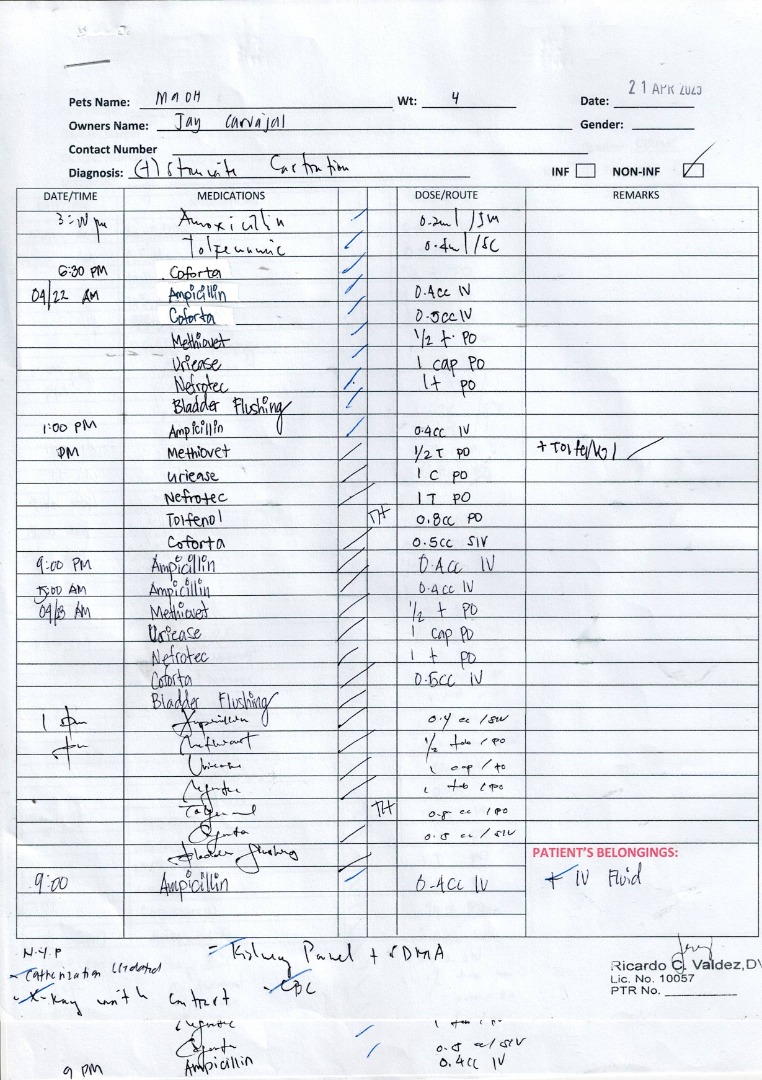 Pets Name: MAOH Wt: 4 Date: 21 APR 2025
Owners Name: Jay Carvajal Gender:
Contact Number
Diagnosis: (+) Struvite Castration INF NON-INF
DATE/TIME MEDICATIONS DOSE/ROUTE REMARKS
Amoxicillin 0.2ml /IM
0.4ml /SC
6:30 PM Coforta
04/22 AM Ampicillin 0.4cc IV
Coforta 0.5cc IV
Methiovet 1/2 t. PO
Uriease 1 cap PO
Nefrotec 1t PO
Bladder Flushing
1:00 PM Ampicillin 0.4cc IV
PM Methiovet 1/2 T PO
Uriease 1 C PO
Nefrotec 1T PO
Tolfenol TH 0.8cc PO
Coforta 0.5cc SIV
9:00 PM Ampicillin 0.4cc IV
5:00 AM Ampicillin 0.4cc IV
04/23 AM Methiovet 1/2 t PO
Uriease 1 cap PO
Nefrotec 1 t PO
Coforta 0.5cc IV
Bladder Flushing
1 pm Ampicillin 0.4 cc / SIV
1/2 tab / PO
Uriease 1 cap / PO
1 tab / PO
TH 0.8 cc / PO
Coforta 0.5 cc / SIV
Bladder Flushing
PATIENT'S BELONGINGS:
9:00 Ampicillin 0.4cc IV + IV Fluid
- Kidney Panel + SDMA
- Catherization Updated
- X-Ray with contrast - CBC
Ricardo C. Valdez, DV
Lic. No. 10057
PTR No.
Coforta 0.5 cc/ SIV
9 PM Ampicillin 0.4cc IV